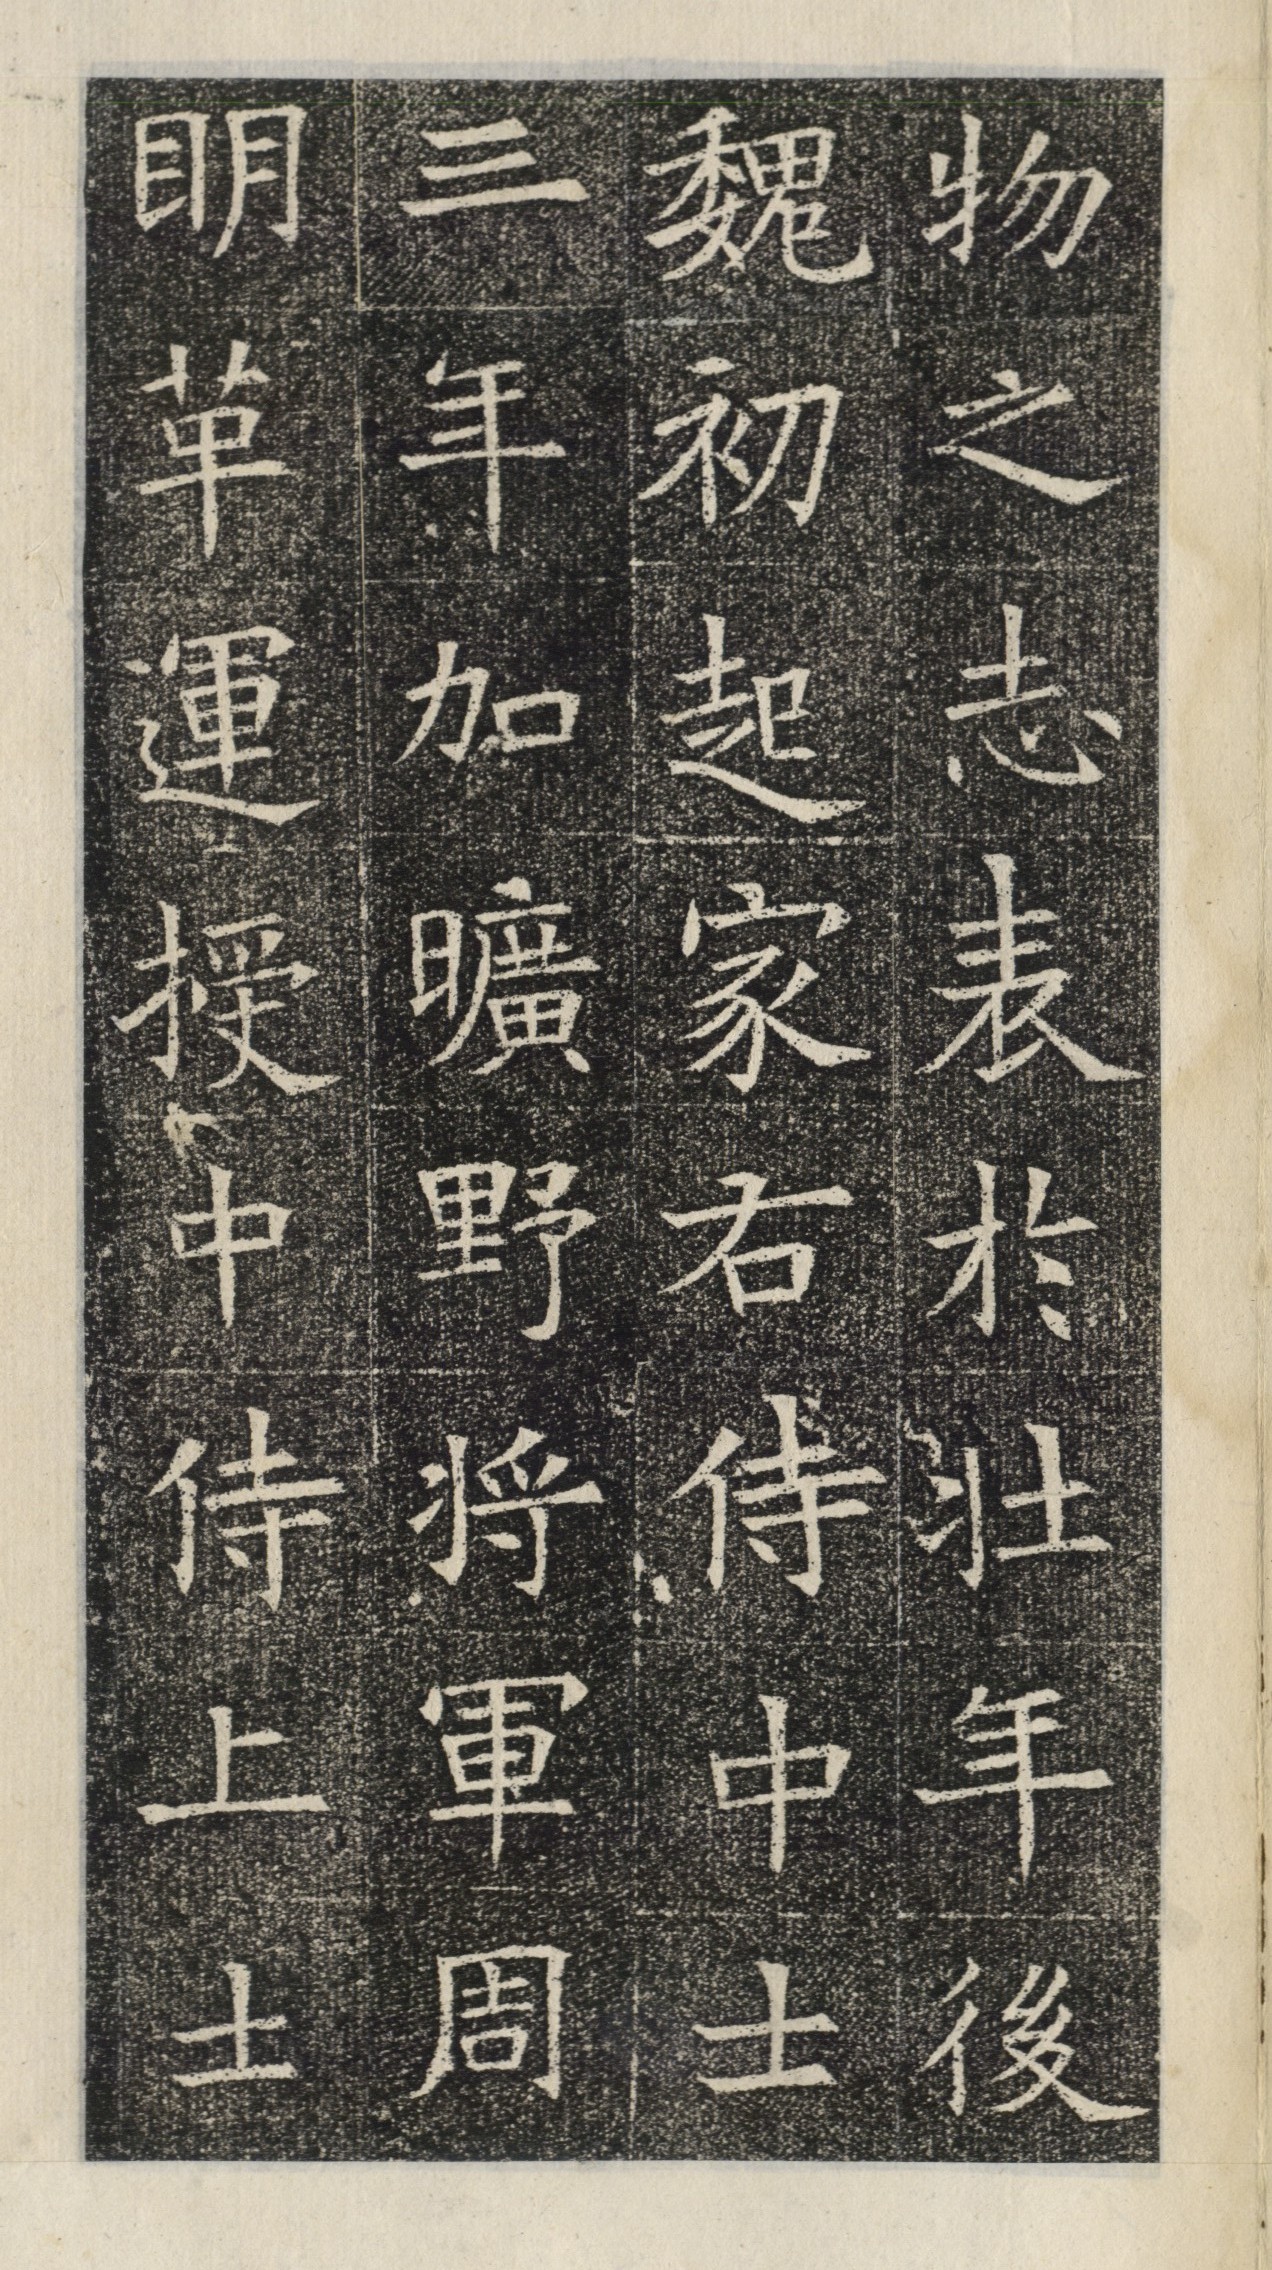 物之志表於壮年後
魏初起家右侍中士
三年加曠野将軍周
明革運授中侍上士